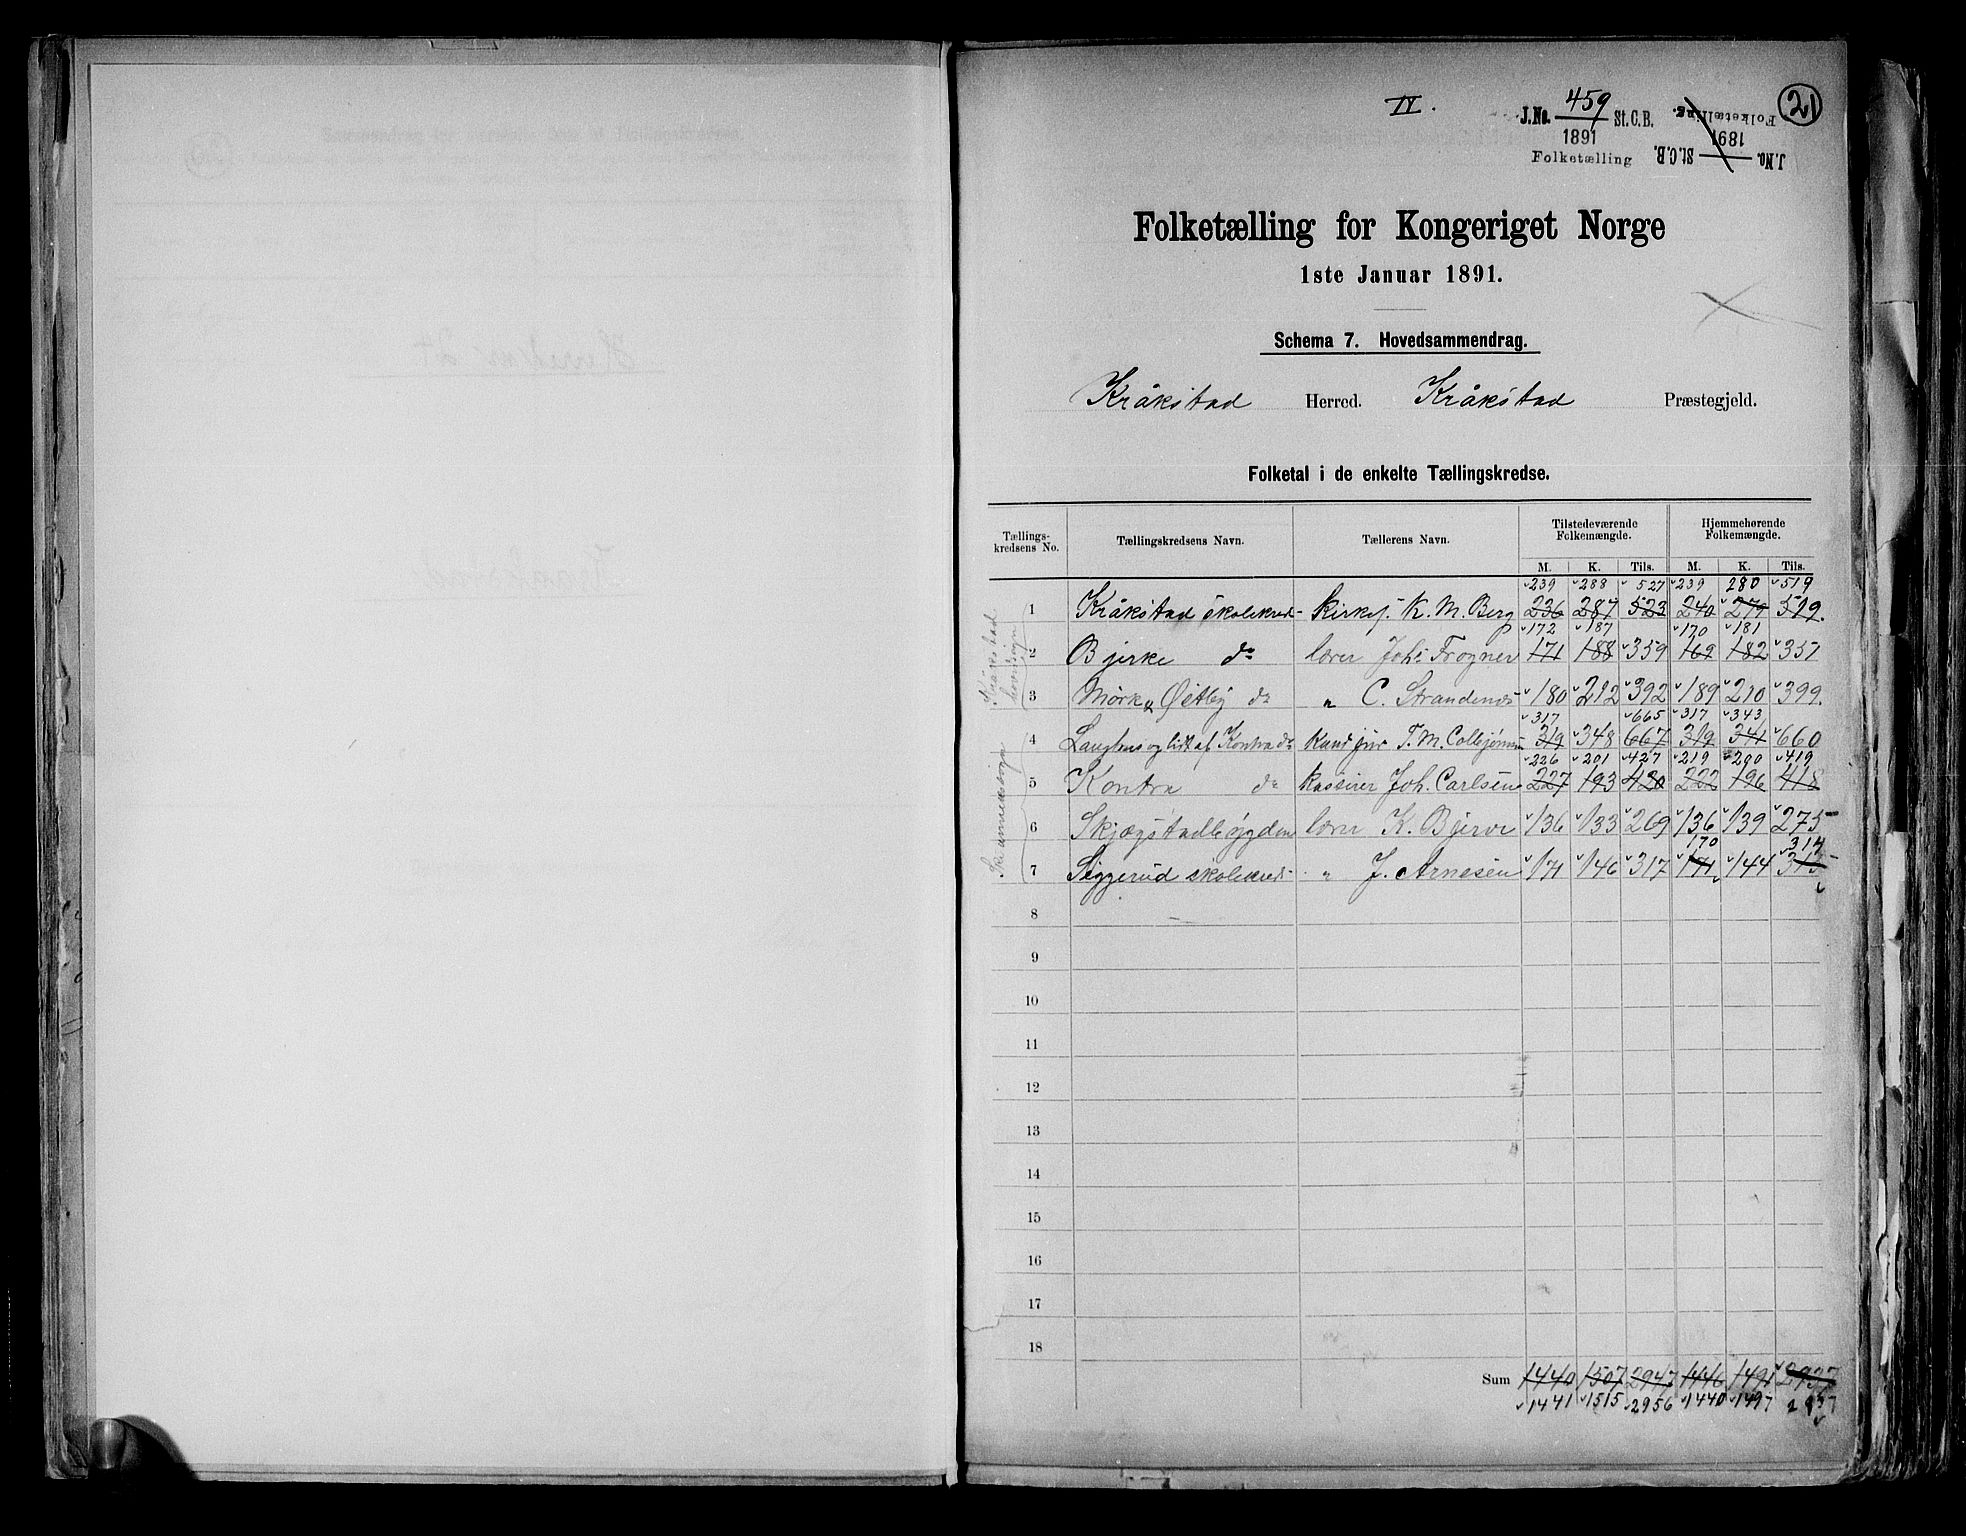 IV.
J.No. 459 St.C.B.
1891
Folketælling
J.No. St.C.B.
1891
Folketælling
21
Folketælling for Kongeriget Norge
1ste Januar 1891.
Schema 7. Hovedsammendrag.
Kråkstad Herred. Kråkstad Præstegjeld.
Folketal i de enkelte Tællingskredse.
Tællings-kredsens No. Tællingskredsens Navn. Tællerens Navn. Tilstedeværende Folkemængde. Hjemmehørende Folkemængde.
M. K. Tils. M. K. Tils.
239 288 527 239 280 519
1 Kråkstad skolekred- Kirkesj. K. M. Berg 236 287 523 240 279 519.
172 187 170 181
2 Bjerke do lærer Johs Frogner 171 188 359 169 182 351
3 Mørk & Østby do " C. Strandenæs 180 212 392 189 210 399.
317 665 317 343
4 Langhus og lidt af Kontra do T. M. 319 348 667 319 341 660
226 201 427 219 200 419
5 Kontra do kasserer Joh. Carlsen 227 193 420 222 196 418
6 Skjægstadbøygden lærer K. Bjerve 136 133 269 136 139 275
170 314
7 Siggerud skolekred- " J. Arnesen 171 146 317 171 144 315
Kråkstad hovedsogn
8
9
10
11
12
13
14
15
16
17
18
Sum 1440 1507 2947 1446 1491 2937
1441 1515 2956 1440 1497 2937